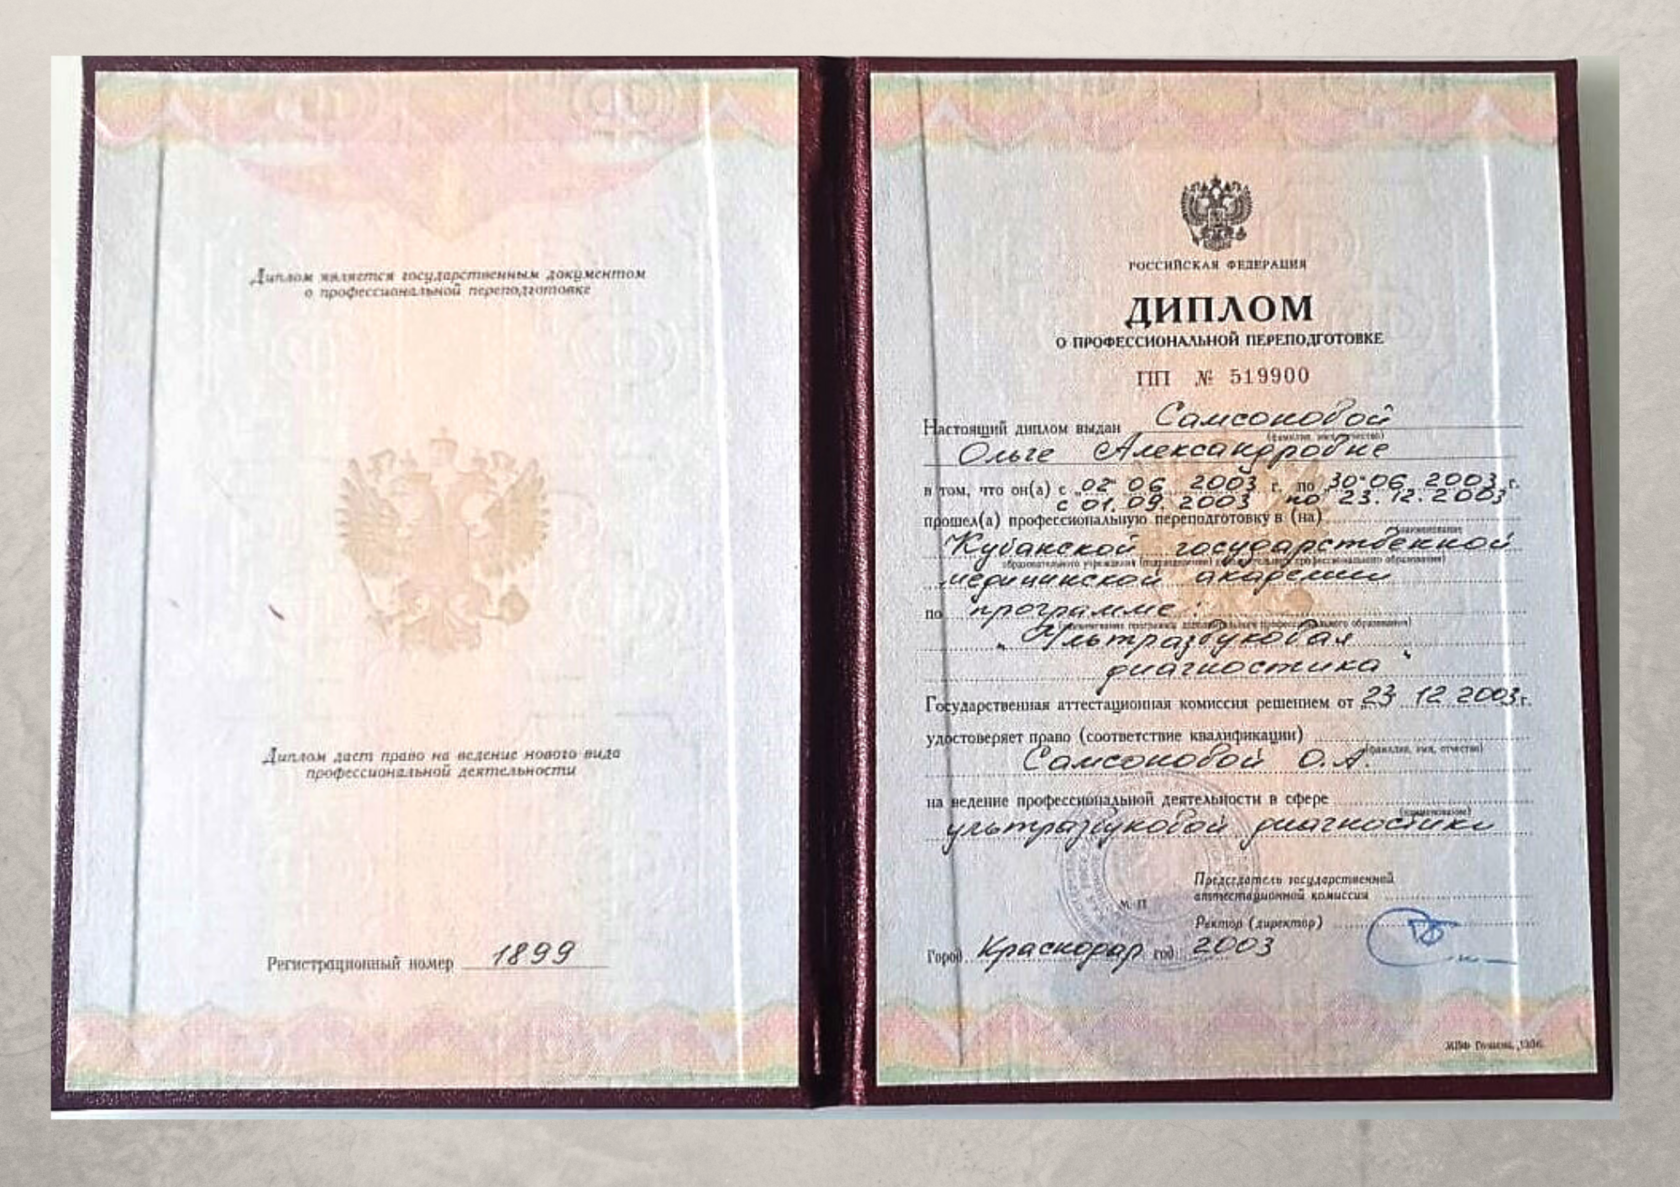 Диплом является государственным документом
о профессиональной переподготовке
Диплом дает право на ведение нового вида
профессиональной деятельности
Регистрационный номер 1899
РОССИЙСКАЯ ФЕДЕРАЦИЯ
ДИПЛОМ
О ПРОФЕССИОНАЛЬНОЙ ПЕРЕПОДГОТОВКЕ
ПП № 519900
Настоящий диплом выдан Самсоновой
(фамилия, имя, отчество)
Ольге Александровне
в том, что он(а) с „02“ 06 2003 г. по 30 06 2003 г.
с 01.09.2003 по 23.12.2003
прошел(а) профессиональную переподготовку в (на)
(наименование
Кубанской государственной
образовательного учреждения (подразделения) дополнительного профессионального образования)
медицинской академии
по программе:
(наименование программы дополнительного профессионального образования)
„Ультразвуковая
диагностика“
Государственная аттестационная комиссия решением от „23“ 12 2003г.
удостоверяет право (соответствие квалификации)
(фамилия, имя, отчество)
Самсоновой О.А.
на ведение профессиональной деятельности в сфере
(наименование)
ультразвуковой диагностики
Председатель государственной
аттестационной комиссии
М. П.
Ректор (директор)
Город Краснодар год 2003